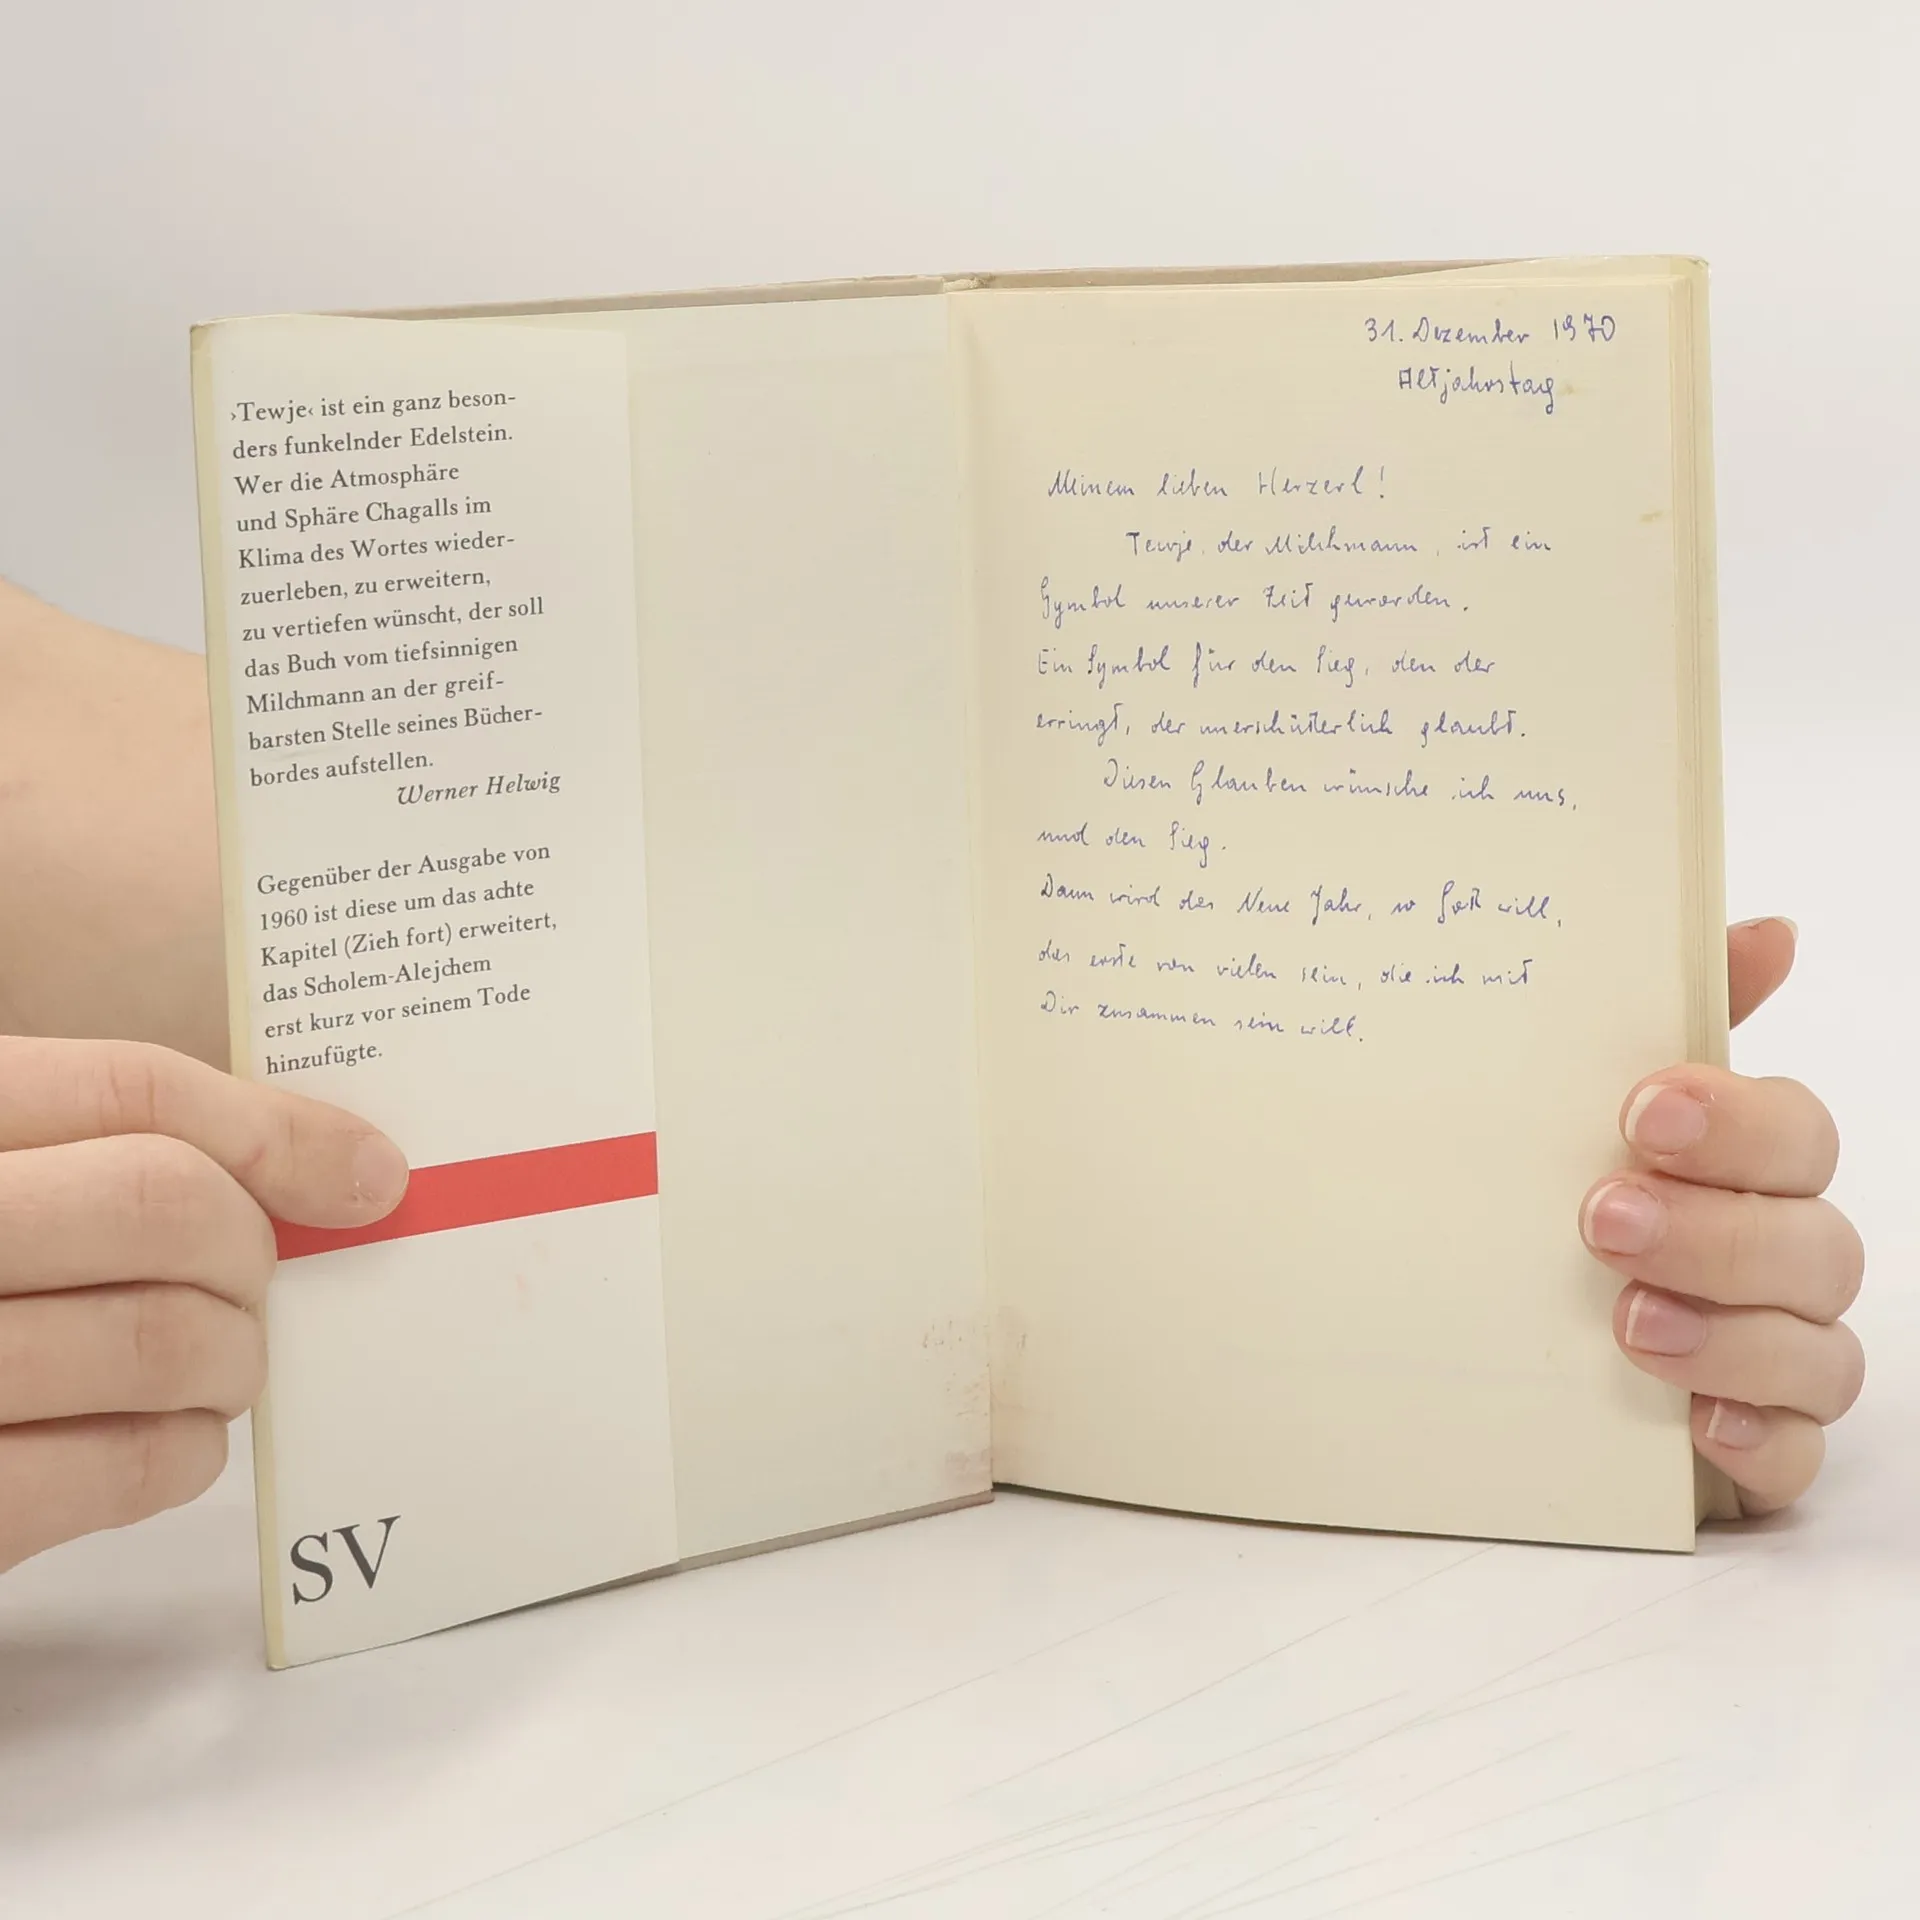 ›Tewje‹ ist ein ganz beson-
ders funkelnder Edelstein.
Wer die Atmosphäre
und Sphäre Chagalls im
Klima des Wortes wieder-
zuerleben, zu erweitern,
zu vertiefen wünscht, der soll
das Buch vom tiefsinnigen
Milchmann an der greif-
barsten Stelle seines Bücher-
bordes aufstellen.
Werner Helwig
Gegenüber der Ausgabe von
1960 ist diese um das achte
Kapitel (Zieh fort) erweitert,
das Scholem-Alejchem
erst kurz vor seinem Tode
hinzufügte.
SV
31. Dezember 1970
Altjahrstag
Meinem lieben Herzerl!
Tewje, der Milchmann, ist ein
Symbol unserer Zeit geworden.
Ein Symbol für den Sieg, den der
erringt, der unerschütterlich glaubt.
Diesen Glauben wünsche ich uns,
und den Sieg.
Dann wird das Neue Jahr, so Gott will,
das erste von vielen sein, die ich mit
Dir zusammen sein will.